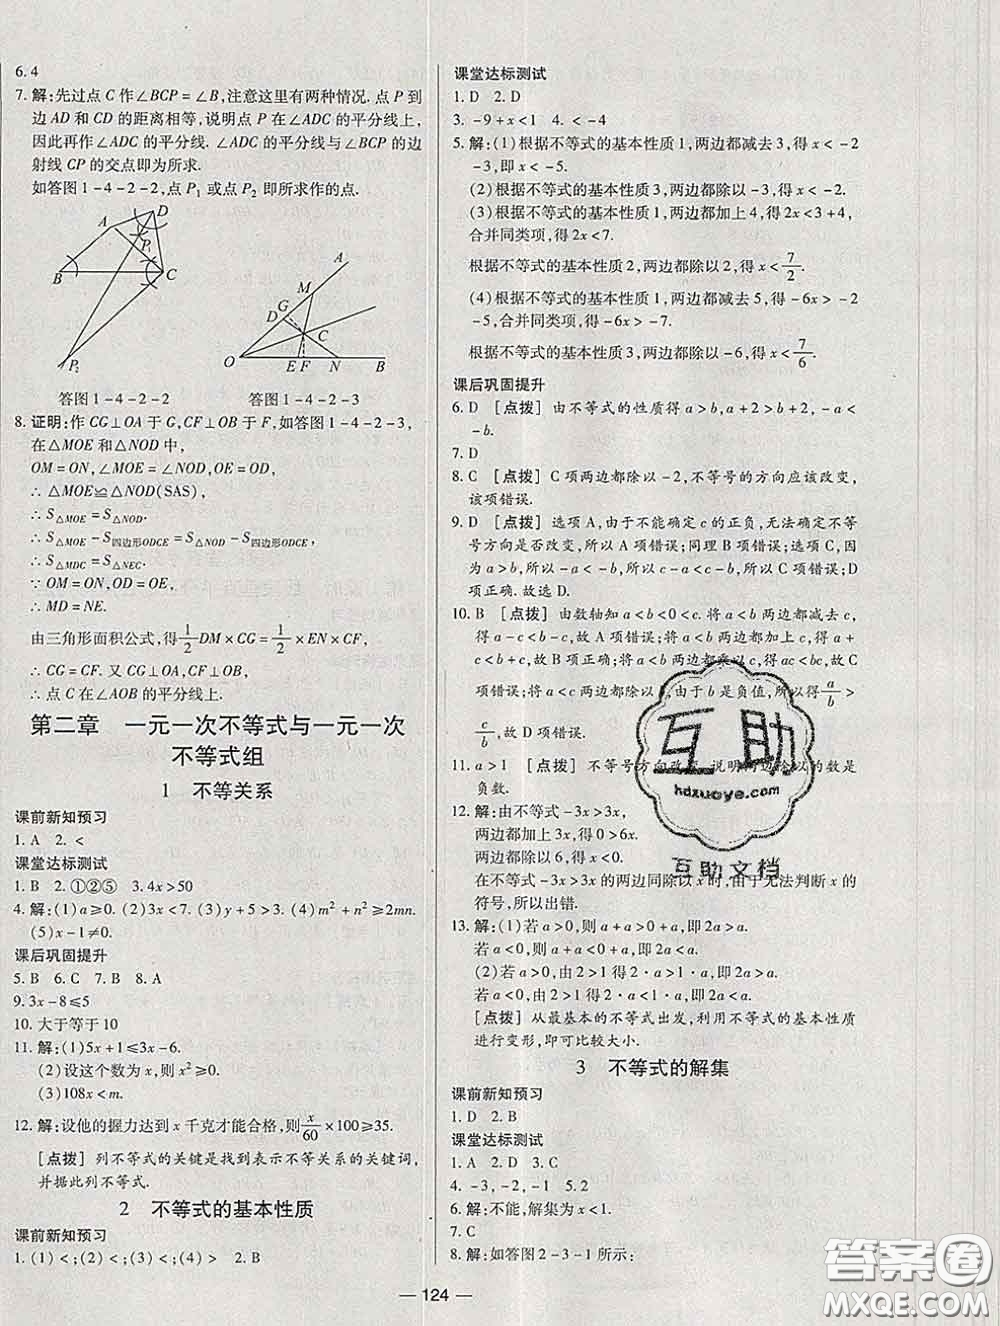 6. 4
7. 解:先过点 C 作∠BCP=∠B,注意这里有两种情况.点 P 到
边 AD 和 CD 的距离相等,说明点 P 在∠ADC 的平分线上,
因此再作∠ADC 的平分线.∠ADC 的平分线与∠BCP 的边
射线 CP 的交点即为所求.
如答图 1-4-2-2,点 P₁ 或点 P₂ 即所求作的点.
A D P₁ B C P₂
A M G D C O E F N B
答图 1-4-2-2 答图 1-4-2-3
8. 证明:作 CG⊥OA 于 G,CF⊥OB 于 F,如答图 1-4-2-3,
在△MOE 和△NOD 中,
OM=ON,∠MOE=∠NOD,OE=OD.
∴△MOE≌△NOD(SAS).
∴S△MOE=S△NOD.
∴S△MOE-S四边形ODCE=S△NOD-S四边形ODCE.
∴S△MDC=S△NEC.
∵OM=ON,OD=OE,
∴MD=NE.
由三角形面积公式,得 1/2 DM×CG=1/2×EN×CF,
∴CG=CF.又 CG⊥OA,CF⊥OB,
∴点 C 在∠AOB 的平分线上.
第二章 一元一次不等式与一元一次
不等式组
1 不等关系
课前新知预习
1. A 2. <
课堂达标测试
1. B 2. ①②⑤ 3. 4x>50
4. 解:(1)a≥0. (2)3x<7. (3)y+5>3. (4)m²+n²≥2mn.
(5)x-1≠0.
课后巩固提升
5. B 6. C 7. B 8. A
9. 3x-8≤5
10. 大于等于 10
11. 解:(1)5x+1≤3x-6.
(2)设这个数为 x,则 x²≥0.
(3)108<m.
12. 解:设他的握力达到 x 千克才能合格,则 x/60×100≥35.
[点拨] 列不等式的关键是找到表示不等关系的关键词,
并据此列不等式.
2 不等式的基本性质
课前新知预习
1. (1)<;(2)<;(3)>;(4)> 2. B
课堂达标测试
1. D 2. D
3. -9+x<1 4. <-4
5. 解:(1)根据不等式的基本性质 1,两边都减去 3,得 x<-2
-3,即 x<-5.
(2)根据不等式的基本性质 3,两边都除以-3,得 x<-2.
(3)根据不等式的基本性质 1,两边都加上 4,得 2x<3+4,
合并同类项,得 2x<7.
根据不等式的基本性质 2,两边都除以 2,得 x<7/2.
(4)根据不等式的基本性质 1,两边都减去 5,得-6x>-2
-5,合并同类项,得-6x>-7.
根据不等式的基本性质 3,两边都除以-6,得 x<7/6.
课后巩固提升
6. D [点拨] 由不等式的性质得 a>b,a+2>b+2,-a<
-b.
7. D
8. C [点拨] C 项两边都除以-2,不等号的方向应该改变,
该项错误.
9. D [点拨] 选项 A,由于不能确定 c 的正负,无法确定不等
号方向是否改变,所以 A 项错误;同理 B 项错误;选项 C,因
为 a>b,所以-a<-b,所以 c-a<c-b,所以 C 项错误;D
项正确.故选 D.
10. B [点拨] 由数轴知 a<b<0<c.将 a<b 两边都减去 c,
得 a-c<b-c,故 A 项错误;将 a<b 两边都加上 c,得 a+
c<b+c,故 B 项正确;将 a<b 两边都乘 c,得 ac<bc,故 C
项错误;将 a<c 两边都除以 b,由于 b 是负值,所以 a/b>
c/b,故 D 项错误.
11. a>1 [点拨] 不等号方向改变,说明两边除以的数是
负数.
12. 解:由不等式-3x>3x,
两边都加上 3x,得 0>6x.
两边都除以 6,得 0>x.
在不等式-3x>3x 的两边同除以 x 时,由于无法判断 x 的
符号,所以出错.
13. 解:(1)若 a>0,则 a+a>0+a,即 2a>a.
若 a<0,则 a+a<0+a,即 2a<a.
(2)若 a>0,由 2>1 得 2·a>1·a,即 2a>a.
若 a<0,由 2>1 得 2·a<1·a,即 2a<a.
[点拨] 从最基本的不等式出发,利用不等式的基本性质
进行变形,即可比较大小.
3 不等式的解集
课前新知预习
1. D 2. B
课堂达标测试
1. A 2. D 3. C
4. -3,-2,-1 5. 2
6. 解:不能,解集为 x<1.
7. C
8. 解:如答图 2-3-1 所示:
— 124 —
互助
hdzuoye.com
互助文档
答案圈
MXQE.COM